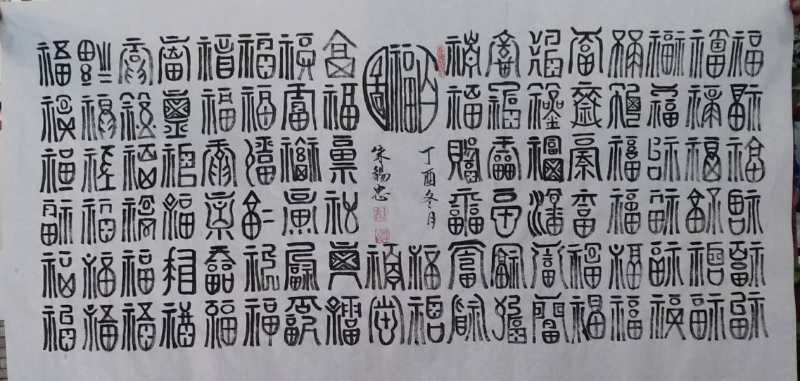 福福福福福福
福福福福福福
福福福福福福
福福福福福福
福福福福福福
福福福福福福
福福福福福福
福福福福福福
福
丁酉冬月
福福
忠
福福
福福福福福福
福福福福福福
福福福福福福
福福福福福福
福福福福福福
福福福福福福
福福福福福福
福福福福福福